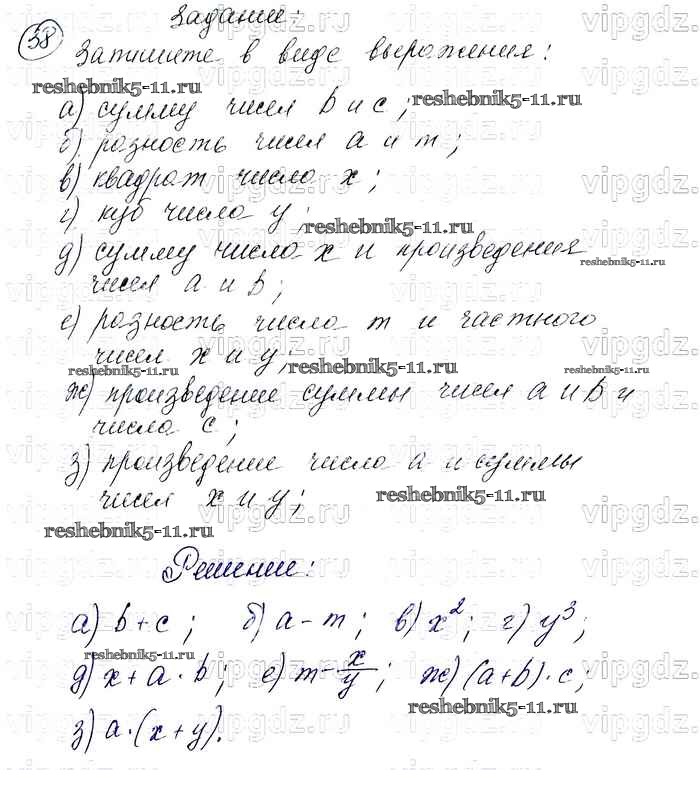 Задание:
38 Запишите в виде выражения:
reshebnik5-11.ru
а) сумму чисел b и c; reshebnik5-11.ru
б) разность чисел a и m;
в) квадрат числа x;
г) куб числа y; reshebnik5-11.ru
д) сумму числа x и произведения
чисел a и b; reshebnik5-11.ru
е) разность числа m и частного
чисел x и y; reshebnik5-11.ru reshebnik5-11.ru
ж) произведение суммы чисел a и b и
числа c;
з) произведение числа a и суммы
чисел x и y; reshebnik5-11.ru
reshebnik5-11.ru
Решение:
а) b+c; б) a-m; в) x²; г) y³;
reshebnik5-11.ru
д) x+a·b; е) m-x/y; ж) (a+b)·c;
reshebnik5-11.ru
з) a·(x+y).